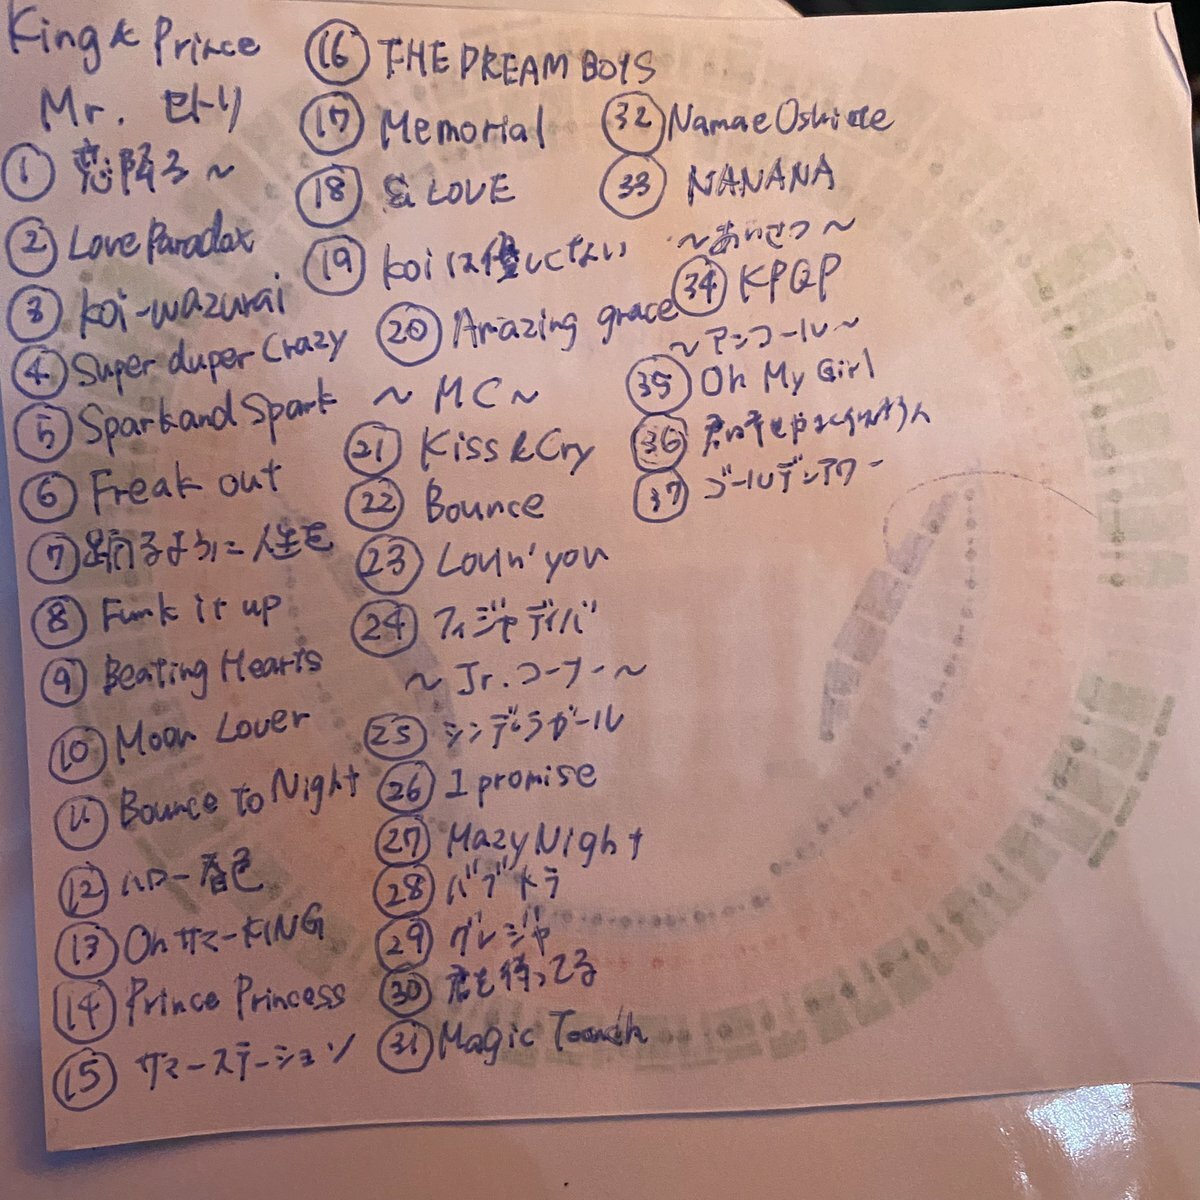 King & Prince
Mr. セトリ
① 恋降る〜
② Love Paradox
③ koi-wazurai
④ Super duper Crazy
⑤ Spark and Spark
⑥ Freak out
⑦ 踊るように人生を
⑧ Funk it up
⑨ Beating Hearts
⑩ Moon Lover
⑪ Bounce To Night
⑫ ハロー春色
⑬ Oh サマーKING
⑭ Prince Princess
⑮ サマーステーション
⑯ THE DREAM BOYS
⑰ Memorial
⑱ & LOVE
⑲ koiは優しくない
⑳ Amazing grace
〜MC〜
㉑ Kiss & Cry
㉒ Bounce
㉓ Lovin' you
㉔ フィジャディバ
〜Jr.コーナー〜
㉕ シンデラガール
㉖ I promise
㉗ Mazy Night
㉘ バブドラ
㉙ グレジャ
㉚ 君を待ってる
㉛ Magic Touch
㉜ Namae Oshiete
㉝ NANANA
〜あいさつ〜
㉞ KPQP
〜アンコール〜
㉟ Oh My Girl
㊱
㊲ ゴールデンアワー